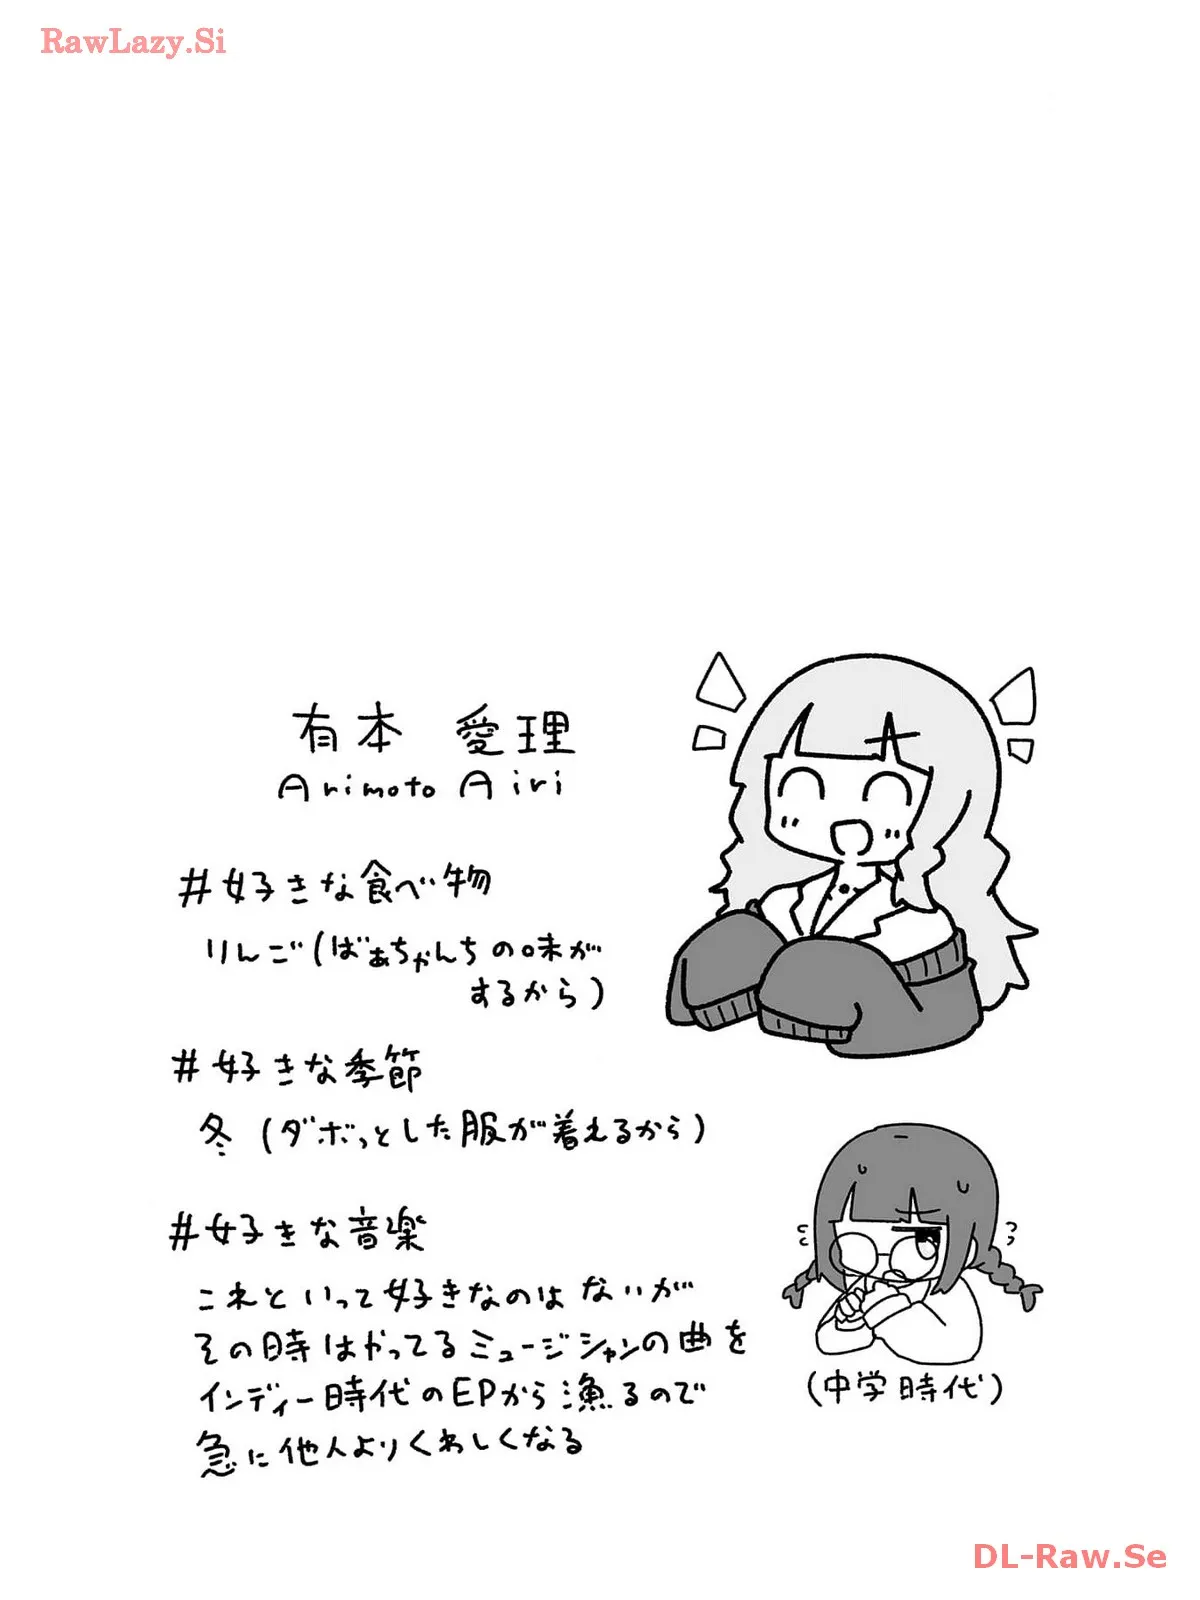 RawLazy.Si
有本 愛理
Arimoto Airi
#好きな食べ物
りんご(ばあちゃんちの味が
するから)
#好きな季節
冬(ダボっとした服が着えるから)
#好きな音楽
これといって好きなのはないが
その時はやってるミュージシャンの曲を
インディー時代のEPから漁るので
急に他人よりくわしくなる
(中学時代)
DL-Raw.Se